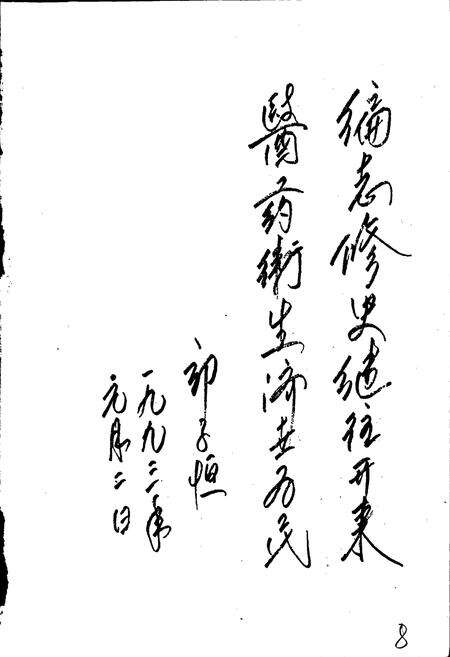 编志修史继往开来
醫药衛生济世为民
子恒
一九九三年
元月二日
8